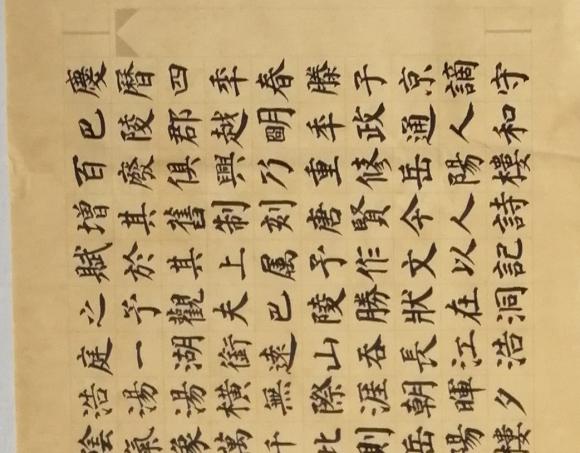 慶曆四年春滕子京謫守
巴陵郡越明年政通人和
百廢俱興乃重修岳陽樓
增其舊制刻唐賢今人詩
賦於其上属予作文以記
之予觀夫巴陵勝狀在洞
庭一湖銜遠山吞長江浩
浩湯湯橫無際涯朝暉夕
陰氣象萬千比則岳陽樓